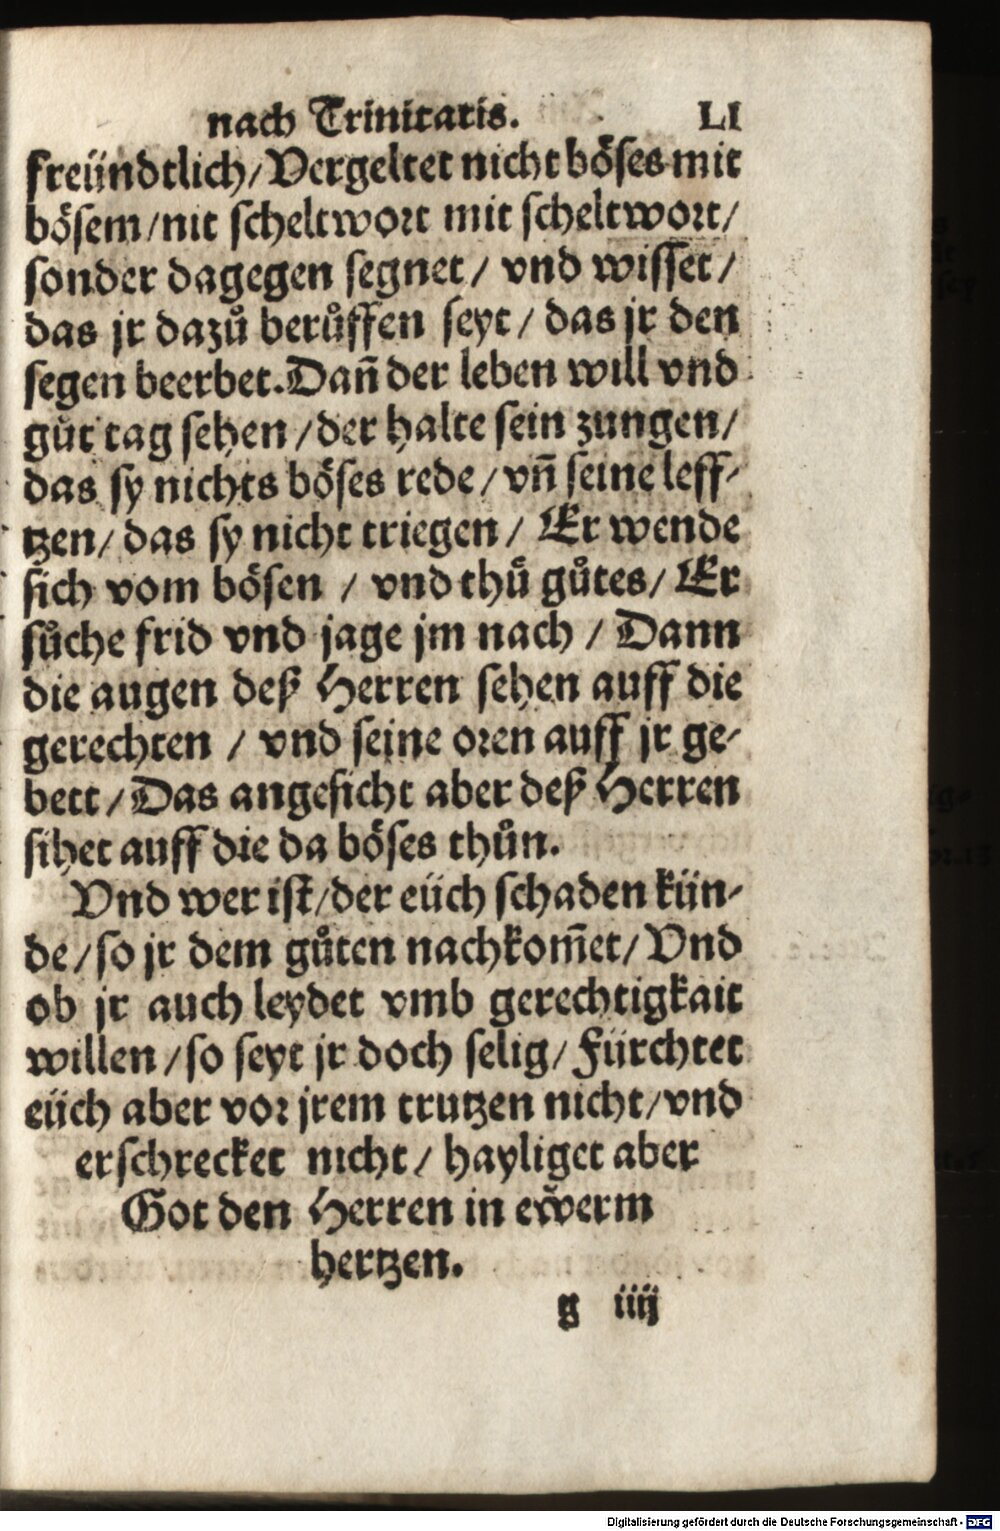 nach Trinitatis. LI
freündtlich/Vergeltet nicht böses mit
bösem/nit scheltwort mit scheltwort/
sonder dagegen segnet/ vnd wisset/
das jr dazů berůffen seyt/ das jr den
segen beerbet.Dañ der leben will vnd
gůt tag sehen/der halte sein zungen/
das sy nichts böses rede/vñ seine leff-
tzen/das sy nicht triegen/ Er wende
sich vom bösen / vnd thů gůtes/Er
sůche frid vnd jage jm nach / Dann
die augen deß Herren sehen auff die
gerechten / vnd seine oren auff jr ge-
bett/Das angesicht aber deß Herren
sihet auff die da böses thůn.
Vnd wer ist/der eüch schaden kün-
de/so jr dem gůten nachkom̃et/Vnd
ob jr auch leydet vmb gerechtigkait
willen/so seyt jr doch selig/Fürchtet
eüch aber vor jrem trutzen nicht/vnd
erschrecket nicht/ hayliget aber
Got den Herren in ewerm
hertzen.
g iiij
Digitalisierung gefördert durch die Deutsche Forschungsgemeinschaft - DFG